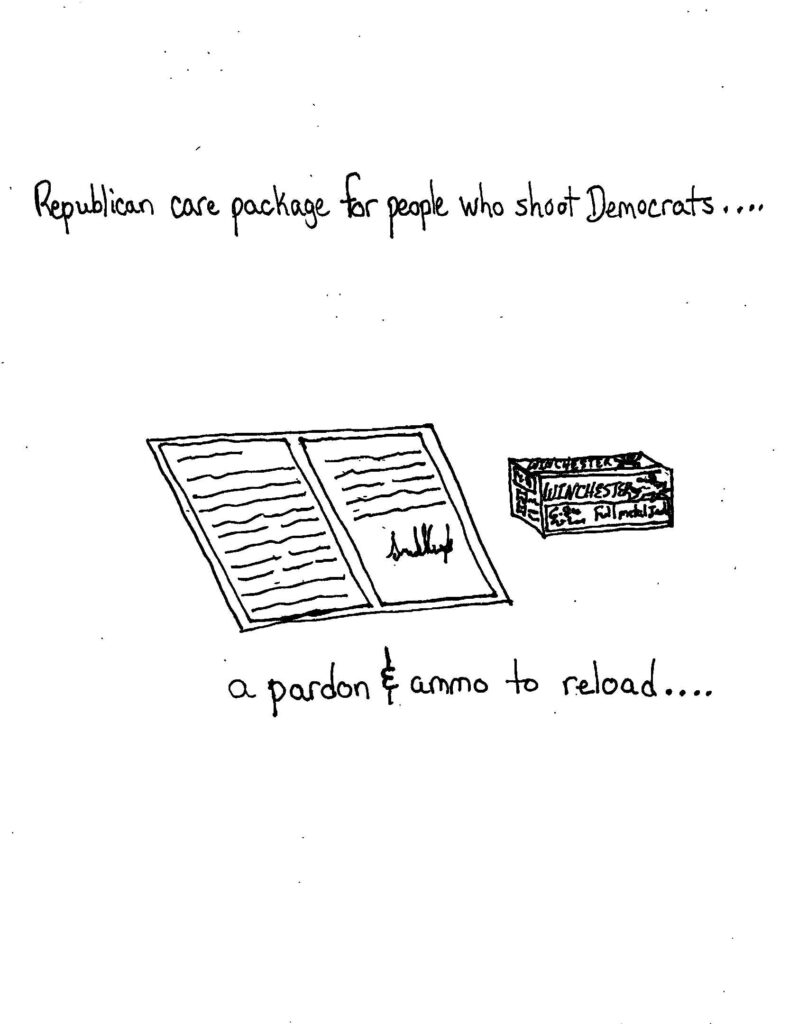 Republican care package for people who shoot Democrats....
WINCHESTER
WINCHESTER
Full metal
a pardon & ammo to reload....